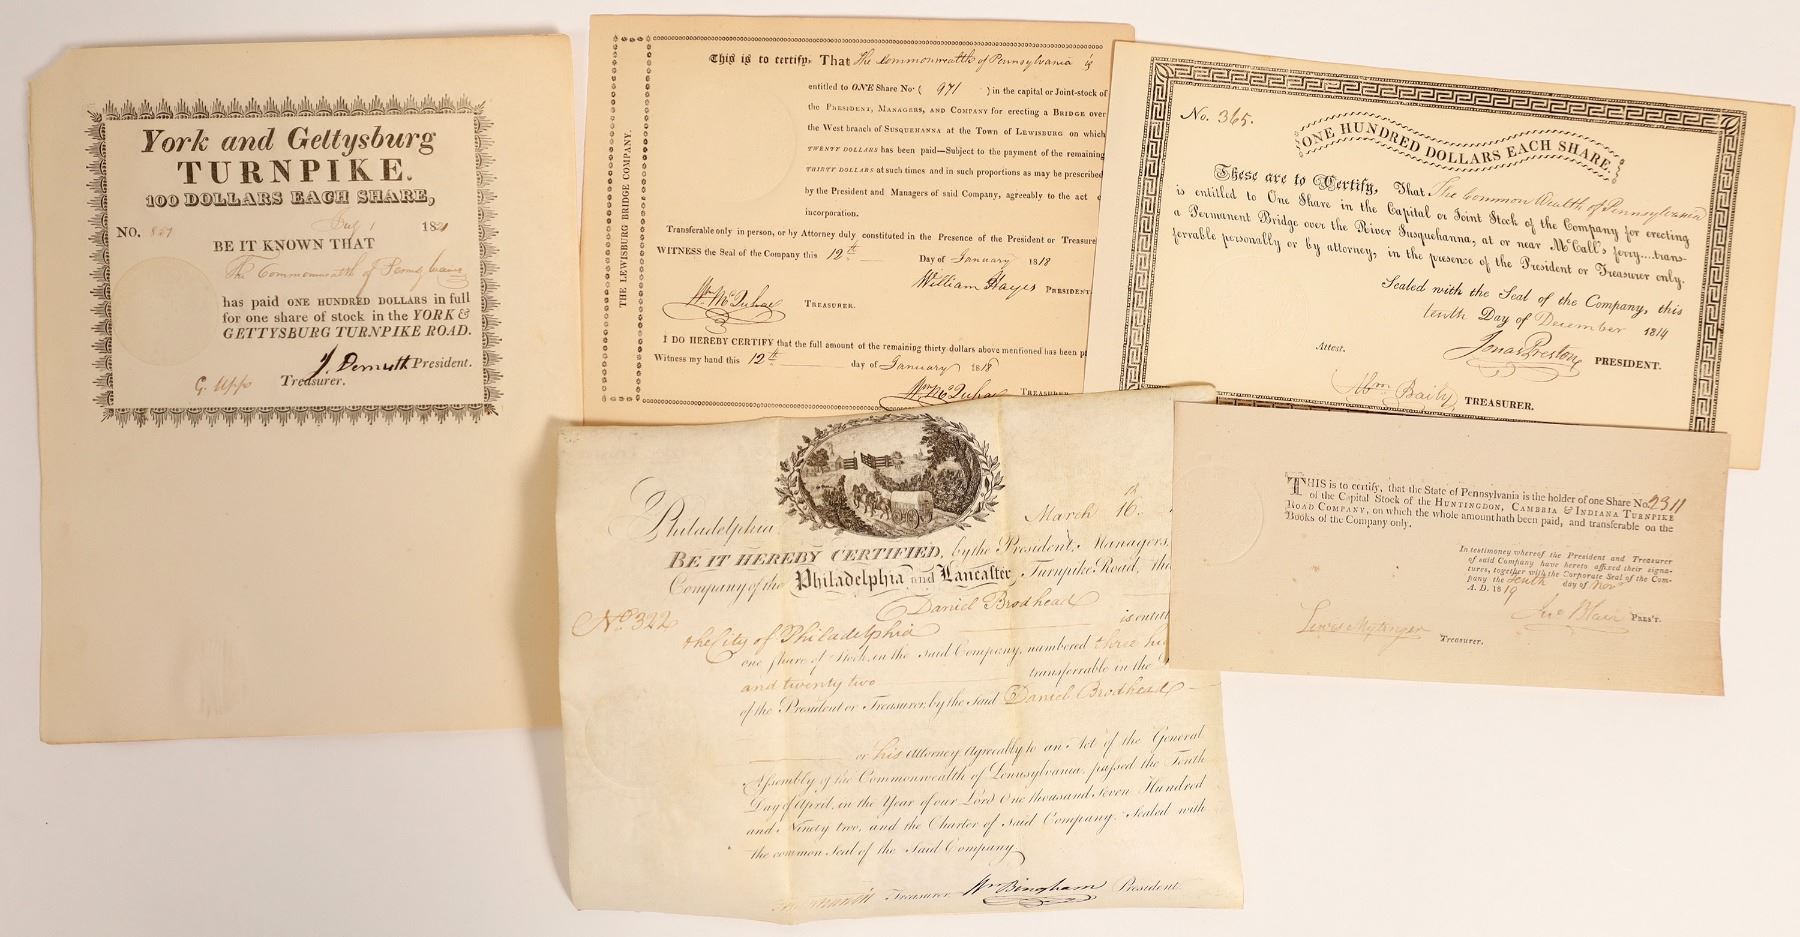 York and Gettysburg
TURNPIKE.
100 DOLLARS EACH SHARE,
1821
NO.
BE IT KNOWN THAT
The Commonwealth of Pennsylvania
has paid ONE HUNDRED DOLLARS in full
for one share of stock in the YORK &
GETTYSBURG TURNPIKE ROAD.
J. Demuth President.
G. Upp Treasurer.
THE LEWISBURG BRIDGE COMPANY.
This is to certify, That The Commonwealth of Pennsylvania is
entitled to ONE Share No. ( 971 ) in the capital or Joint-stock of
the PRESIDENT, MANAGERS, AND COMPANY for erecting a BRIDGE over
the West branch of SUSQUEHANNA at the Town of LEWISBURG on which
TWENTY DOLLARS has been paid—Subject to the payment of the remaining
THIRTY DOLLARS at such times and in such proportions as may be prescribed
by the President and Managers of said Company, agreeably to the act
incorporation.
Transferable only in person, or by Attorney duly constituted in the Presence of the President or Treasure
WITNESS the Seal of the Company this 12th Day of January 1818
William Hayes PRESIDENT.
TREASURER.
I DO HEREBY CERTIFY that the full amount of the remaining thirty dollars above mentioned has been
Witness my hand this 12th day of January 1818
TREASURER
No. 365.
ONE HUNDRED DOLLARS EACH SHARE.
These are to Certify, That The Common Wealth of Pennsylvania
is entitled to One Share in the Capital or Joint Stock of the Company for erecting
a Permanent Bridge over the River Susquehanna, at or near McCall's ferry....trans-
ferrable personally or by attorney, in the presence of the President or Treasurer only.
Sealed with the Seal of the Company, this
tenth Day of December 1814
Attest.
Jonas Preston PRESIDENT.
Abm Baily, TREASURER.
Philadelphia March 16th
BE IT HEREBY CERTIFIED, by the President, Managers,
Company of the Philadelphia and Lancaster Turnpike Road, tha
No 322 Daniel Brodhead
the City of Philadelphia is entitl
one share of Stock, in the said Company, numbered three hu
and twenty two transferrable in the
of the President or Treasurer, by the said Daniel Brodhead
or his Attorney Agreeably to an Act of the General
Assembly of the Commonwealth of Pennsylvania, passed the Tenth
Day of April, in the Year of our Lord One thousand Seven Hundred
and Ninety two, and the Charter of Said Company. Sealed with
the common Seal of the Said Company
Treasurer Wm Bingham President.
THIS is to certify, that the State of Pennsylvania is the holder of one Share No. 2311
of the Capital Stock of the HUNTINGDON, CAMBRIA & INDIANA TURNPIKE
ROAD COMPANY, on which the whole amount hath been paid, and transferable on the
Books of the Company only.
In testimony whereof the President and Treasurer
of said Company have hereto affixed their signa-
tures, together with the Corporate Seal of the Com-
pany the tenth day of Nov
A. D. 1819
Jno Blair PRES'T.
Lewis Mytinger Treasurer.